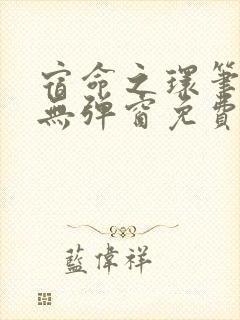 宿命之環筆
無彈窗免費
藍偉祥